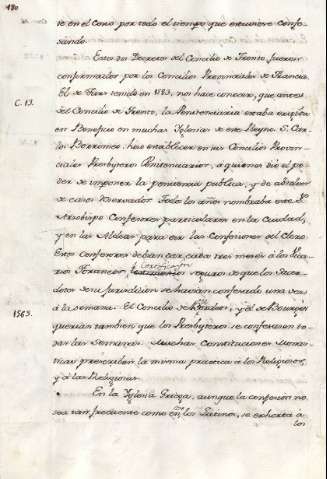 180
te en el Coro por todo el tiempo que estuviere confe-
sando.
Estos Decretos del Concilio de Trento fueron
confirmados por los Concilios Provinciales de Francia.
C. 13.
El de Tours tenido en 1583, nos hace conocer, que antes
del Concilio de Trento, la Penitenciaria estaba erigida
en Beneficio en muchas Iglesias de este Reyno. S. Car-
los Borromeo, hizo establecer en su Concilio Provin-
cial Presbyteros Penitenciarios, a quienes dio el po-
der de imponer la penitencia publica, y de absolver
de casos reservados. Todo los años nombraba este
Arzobispo Confesores particulares en la Ciudad,
y en las Aldeas para oir las Confesiones del Clero.
Estos Confesores debian dar cada tres meses a los Vica-
rios Foraneos, certificacion segura de que los Sacer-
dotes de su jurisdiccion se havian confesado una vez
1583.
á la semana. El Concilio de Burdeos, y el de Bourges
querian tambien que los Presbyteros se confesasen to-
das las Semanas. Muchas Constituciones Sinodales
prescriben la misma practica a los Religiosos,
y á las Religiosas.
En la Iglesia Griega, aunque la confesion no
sea tan frequente como en los Latinos, se exhorta a
los